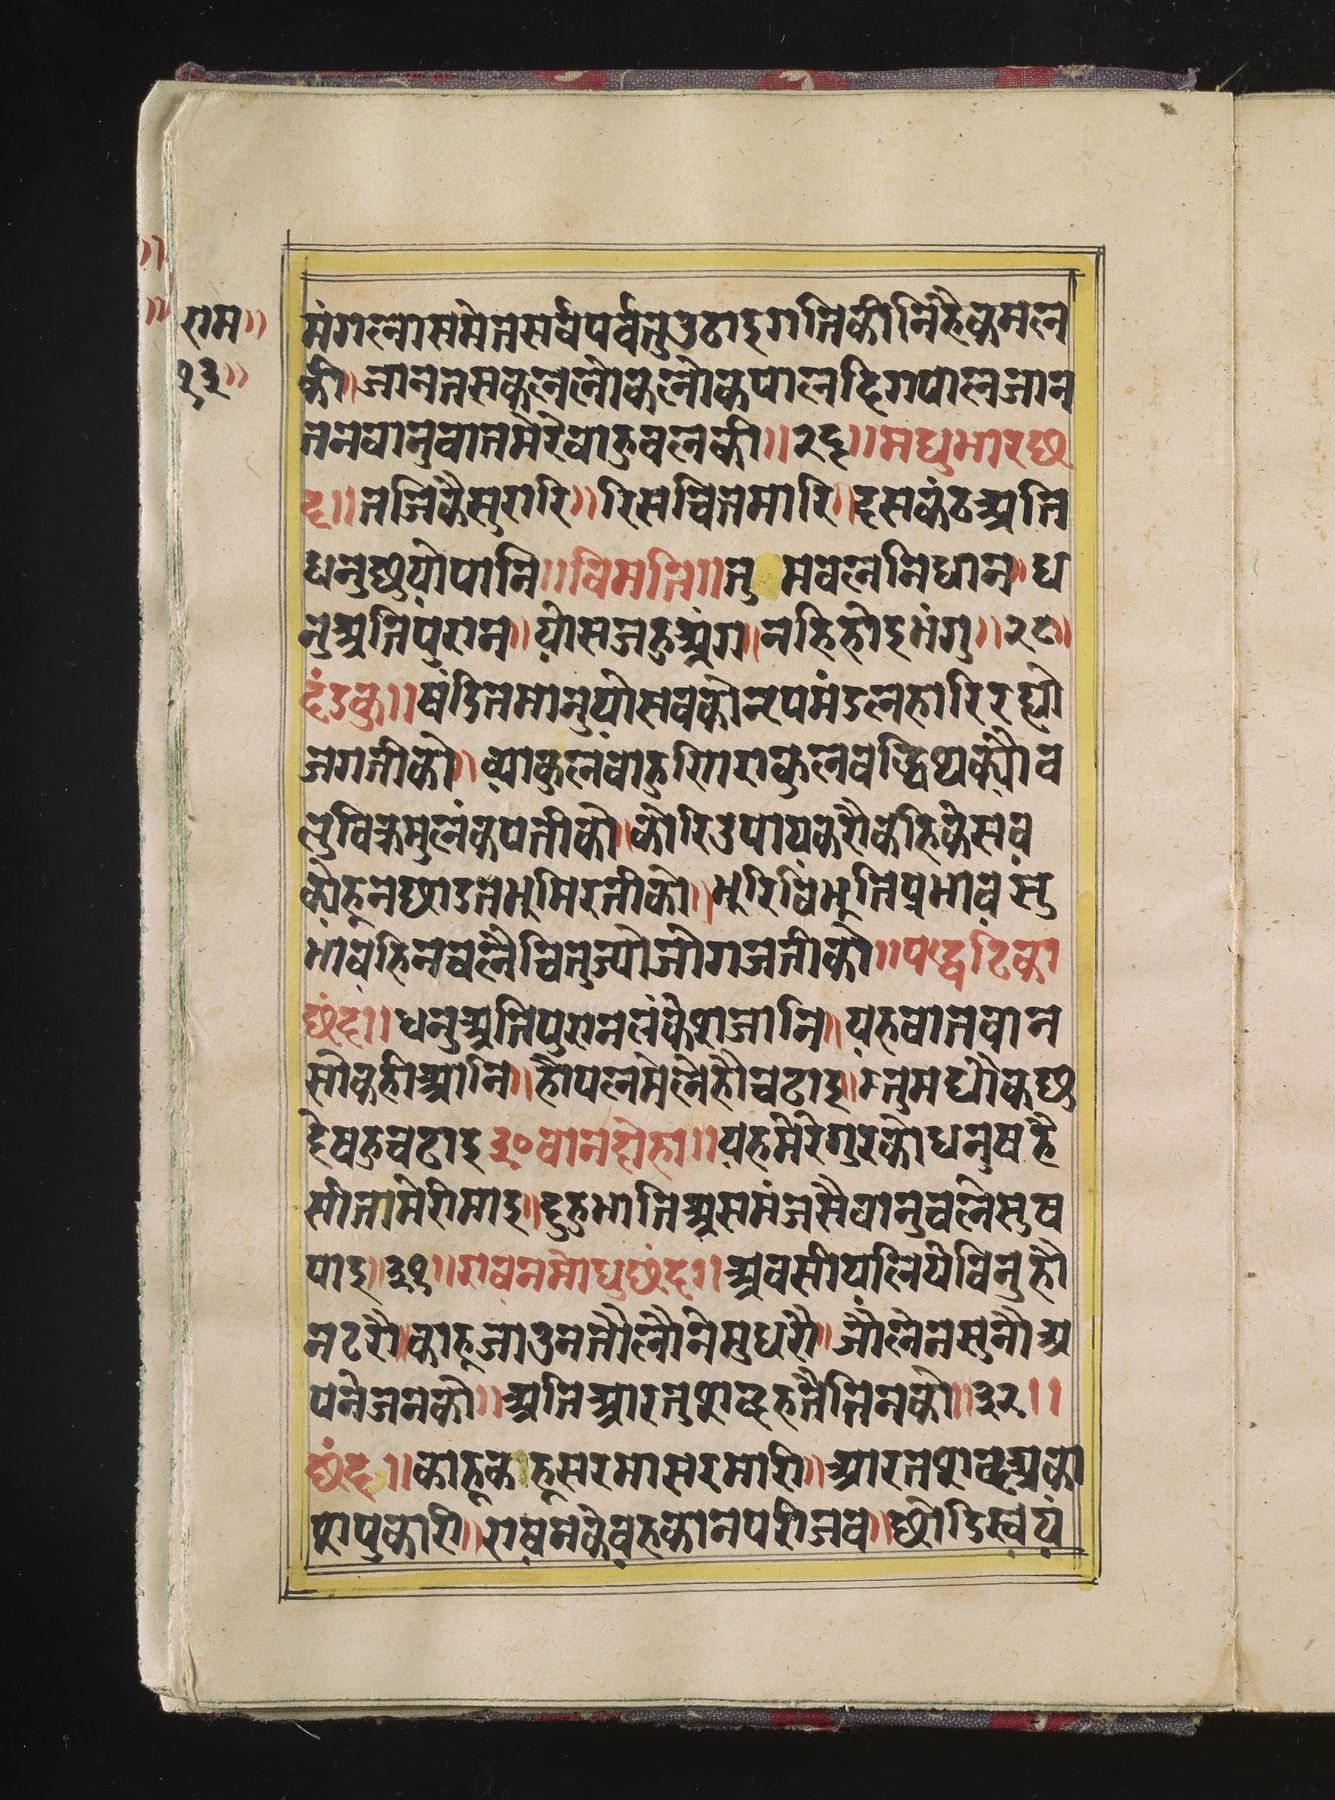 राम॥
१३॥
मंगलासमेतसर्वपर्वतुउठाइगतिकीनिहैकमल
की॥जानतसकललोकलोकपालदिगपालजान
तनवानुवातमेरेवाहुवलकी॥२६॥मधुभारछं
द॥तजिकैसुरारि॥रिसचित्तमारि॥दसकंठअनि
धनुछुयोपानि॥विमति॥तुमवलनिधान॥ध
नुअतिपुरान॥योसजहुअंग॥नहिहोइभंगु॥२८॥
दंडकु॥षंडितमानुयोसवकोनृपमंडलहारिरह्यो
जगतीको॥व्याकुलवाहुगिराकुलवद्धिथक्योव
लुविक्रमुलंकपतीको॥कोरिउपायकरौकहिकेसव
कोहूनछाडतभूमिरतीको॥भूरिविभूतिप्रभावसु
भावहिनचलैचितुज्योजोगजतीको॥पद्धटिका
छंद॥धनुअतिपुरानलंकेशजानि॥यहवातवान
सोकहीआनि॥हौपलमेलैहौचढाइ॥तुमद्योकछ
देषहुचढाइ३०वानदोहा॥यहमेरेगुरकोधनुषहै
सीतामेरीमाइ॥दुहुभातिअसमंजसैवानुचलेसुष
पाइ॥३१॥रावनमोधुछंद॥अवसीयलियेविनुहौ
नटरौ॥काहूजाउनतौलौनेमुधरौ॥जौलैनसुनौअ
पनेजनको॥अतिआरतुशब्दहतैतिनको॥३२॥
छंद॥काहूकाहूसरभासरमारी॥आरतशब्दअका
शपुकारी॥रावनकेवहकानपरीजव॥छोडिस्वयं